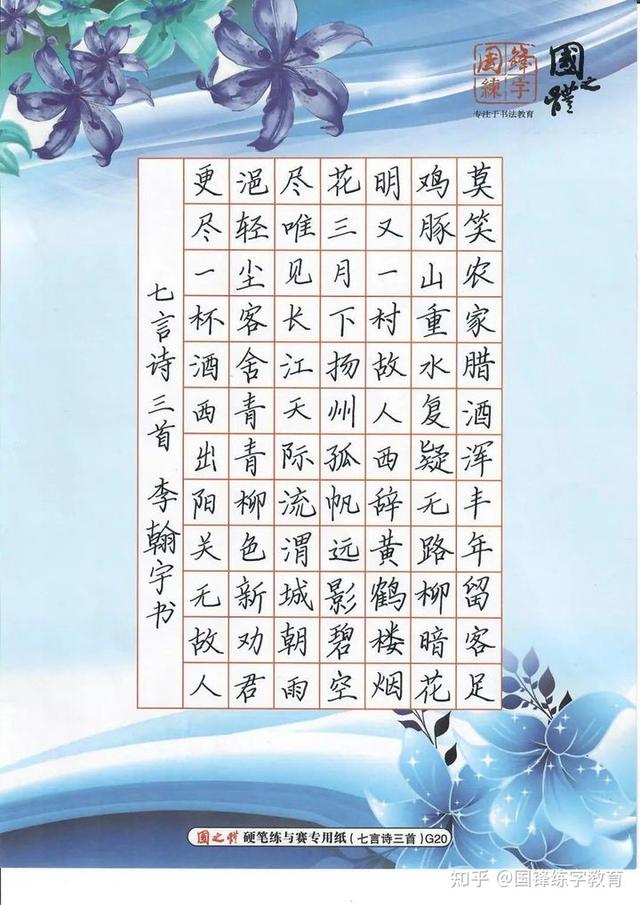 国锋
練字
专注于书法教育
國之體
莫笑农家腊酒浑丰年留客足
鸡豚山重水复疑无路柳暗花
明又一村故人西辞黄鹤楼烟
花三月下扬州孤帆远影碧空
尽唯见长江天际流渭城朝雨
浥轻尘客舍青青柳色新劝君
更尽一杯酒西出阳关无故人
七言诗三首 李翰宇书
國之體 硬笔练与赛专用纸(七言诗三首)G20
知乎 @国锋练字教育